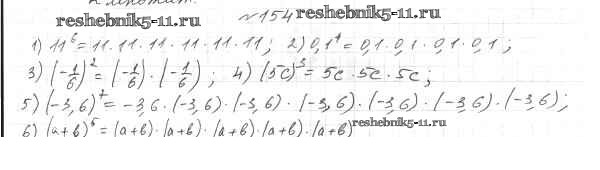 reshebnik5-11.ru №154 reshebnik5-11.ru
1) 11⁶ = 11 · 11 · 11 · 11 · 11 · 11; 2) 0,1⁴ = 0,1 · 0,1 · 0,1 · 0,1;
3) (-1/6)² = (-1/6) · (-1/6); 4) (5c)³ = 5c · 5c · 5c;
5) (-3,6)⁷ = -3,6 · (-3,6) · (-3,6) · (-3,6) · (-3,6) · (-3,6) · (-3,6);
6) (a+b)⁵ = (a+b) · (a+b) · (a+b) · (a+b) · (a+b) reshebnik5-11.ru